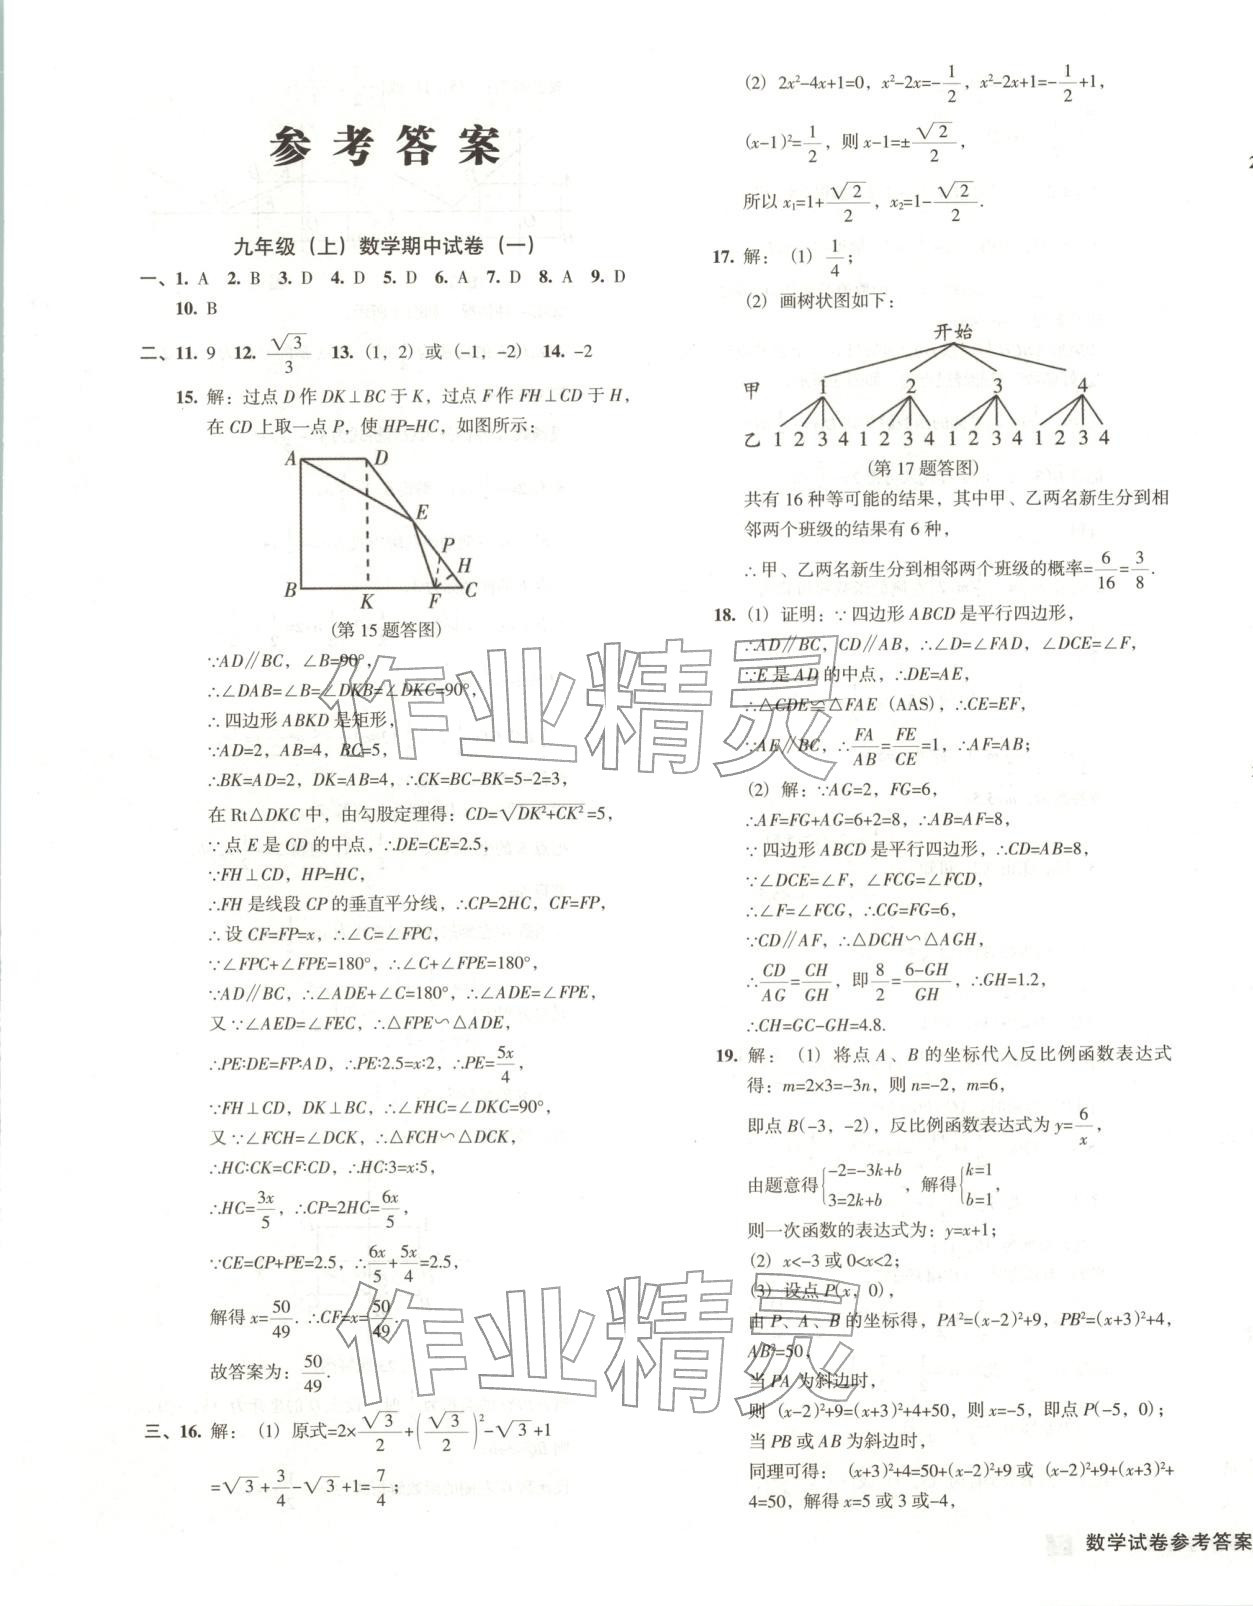 参考答案
九年级（上）数学期中试卷（一）
一、1. A 2. B 3. D 4. D 5. D 6. A 7. D 8. A 9. D
10. B
二、11. 9 12. √3/3 13.（1，2）或（-1，-2） 14. -2
15. 解：过点 D 作 DK⊥BC 于 K，过点 F 作 FH⊥CD 于 H，
在 CD 上取一点 P，使 HP=HC，如图所示：
A D
E
P
H
B K F C
（第 15 题答图）
∵AD∥BC，∠B=90°，
∴∠DAB=∠B=∠DKB=∠DKC=90°，
∴四边形 ABKD 是矩形，
∵AD=2，AB=4，BC=5，
∴BK=AD=2，DK=AB=4，∴CK=BC-BK=5-2=3，
在 Rt△DKC 中，由勾股定理得：CD=√(DK²+CK²)=5，
∵点 E 是 CD 的中点，∴DE=CE=2.5，
∵FH⊥CD，HP=HC，
∴FH 是线段 CP 的垂直平分线，∴CP=2HC，CF=FP，
∴设 CF=FP=x，∴∠C=∠FPC，
∵∠FPC+∠FPE=180°，∴∠C+∠FPE=180°，
∵AD∥BC，∴∠ADE+∠C=180°，∴∠ADE=∠FPE，
又∵∠AED=∠FEC，∴△FPE∽△ADE，
∴PE∶DE=FP∶AD，∴PE∶2.5=x∶2，∴PE=5x/4，
∵FH⊥CD，DK⊥BC，∴∠FHC=∠DKC=90°，
又∵∠FCH=∠DCK，∴△FCH∽△DCK，
∴HC∶CK=CF∶CD，∴HC∶3=x∶5，
∴HC=3x/5，∴CP=2HC=6x/5，
∵CE=CP+PE=2.5，∴6x/5+5x/4=2.5，
解得 x=50/49. ∴CF=x=50/49.
故答案为：50/49.
三、16. 解：（1）原式=2×√3/2+(√3/2)²-√3+1
=√3+3/4-√3+1=7/4；
（2）2x²-4x+1=0，x²-2x=-1/2，x²-2x+1=-1/2+1，
(x-1)²=1/2，则 x-1=±√2/2，
所以 x₁=1+√2/2，x₂=1-√2/2.
17. 解：（1）1/4；
（2）画树状图如下：
开始
甲 1 2 3 4
乙 1 2 3 4 1 2 3 4 1 2 3 4 1 2 3 4
（第 17 题答图）
共有 16 种等可能的结果，其中甲、乙两名新生分到相
邻两个班级的结果有 6 种，
∴甲、乙两名新生分到相邻两个班级的概率=6/16=3/8.
18.（1）证明：∵四边形 ABCD 是平行四边形，
∴AD∥BC，CD∥AB，∴∠D=∠FAD，∠DCE=∠F，
∵E 是 AD 的中点，∴DE=AE，
∴△CDE≌△FAE（AAS），∴CE=EF，
∵AE∥BC，∴FA/AB=FE/CE=1，∴AF=AB；
（2）解：∵AG=2，FG=6，
∴AF=FG+AG=6+2=8，∴AB=AF=8，
∵四边形 ABCD 是平行四边形，∴CD=AB=8，
∵∠DCE=∠F，∠FCG=∠FCD，
∴∠F=∠FCG，∴CG=FG=6，
∵CD∥AF，∴△DCH∽△AGH，
∴CD/AG=CH/GH，即8/2=(6-GH)/GH，∴GH=1.2，
∴CH=GC-GH=4.8.
19. 解：（1）将点 A、B 的坐标代入反比例函数表达式
得：m=2×3=-3n，则 n=-2，m=6，
即点 B(-3，-2)，反比例函数表达式为 y=6/x，
由题意得{-2=-3k+b 3=2k+b，解得{k=1 b=1，
则一次函数的表达式为：y=x+1；
（2）x<-3 或 0<x<2；
（3）设点 P(x，0)，
由 P、A、B 的坐标得，PA²=(x-2)²+9，PB²=(x+3)²+4，
AB²=50，
当 PA 为斜边时，
则 (x-2)²+9=(x+3)²+4+50，则 x=-5，即点 P(-5，0)；
当 PB 或 AB 为斜边时，
同理可得：(x+3)²+4=50+(x-2)²+9 或 (x-2)²+9+(x+3)²+
4=50，解得 x=5 或 3 或-4，
作业精灵
作业精灵
数学试卷参考答案